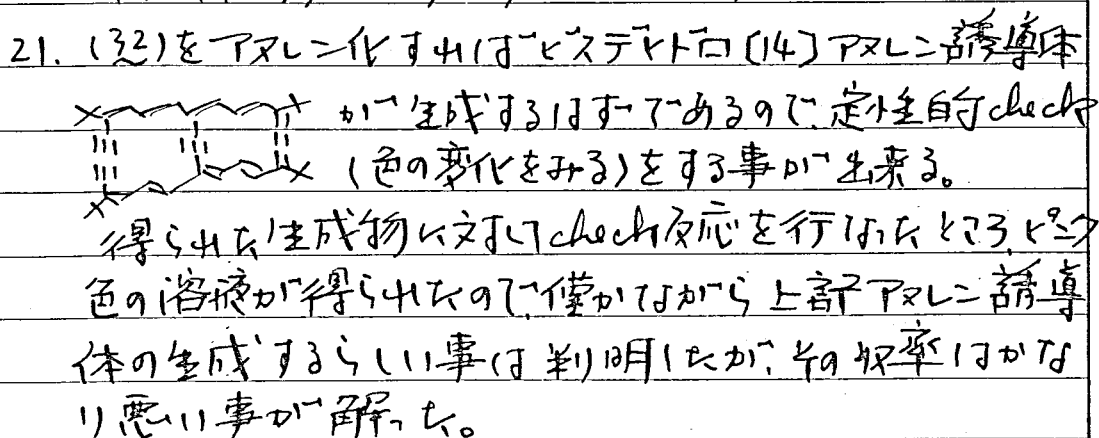 21. (32)をアヌレン化すればビスデヒドロ[14]アヌレン誘導体
が生成するはずであるので、定性的check
(色の変化をみる)をする事が出来る。
得られた生成物に対してcheck反応を行なったところ、ピンク
色の溶液が得られたので、僅かながら上記アヌレン誘導
体の生成するらしい事は判明したが、その収率はかな
り悪い事が解った。